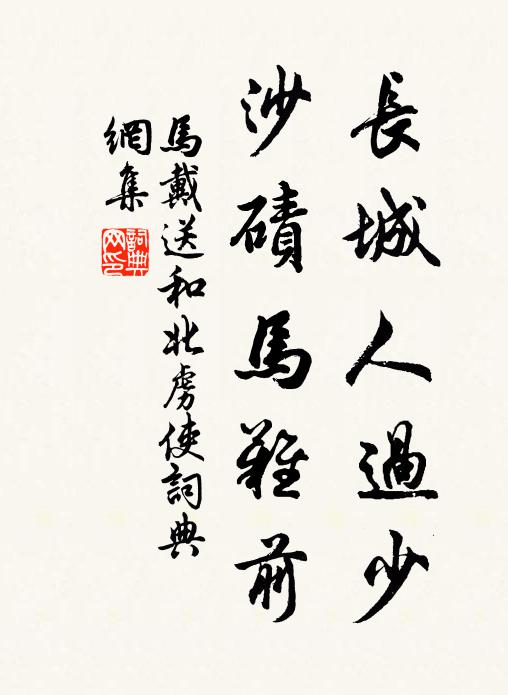 長城人過少
沙磧馬難前
馬戴送和北虜使詞典
網集
詞典
网印